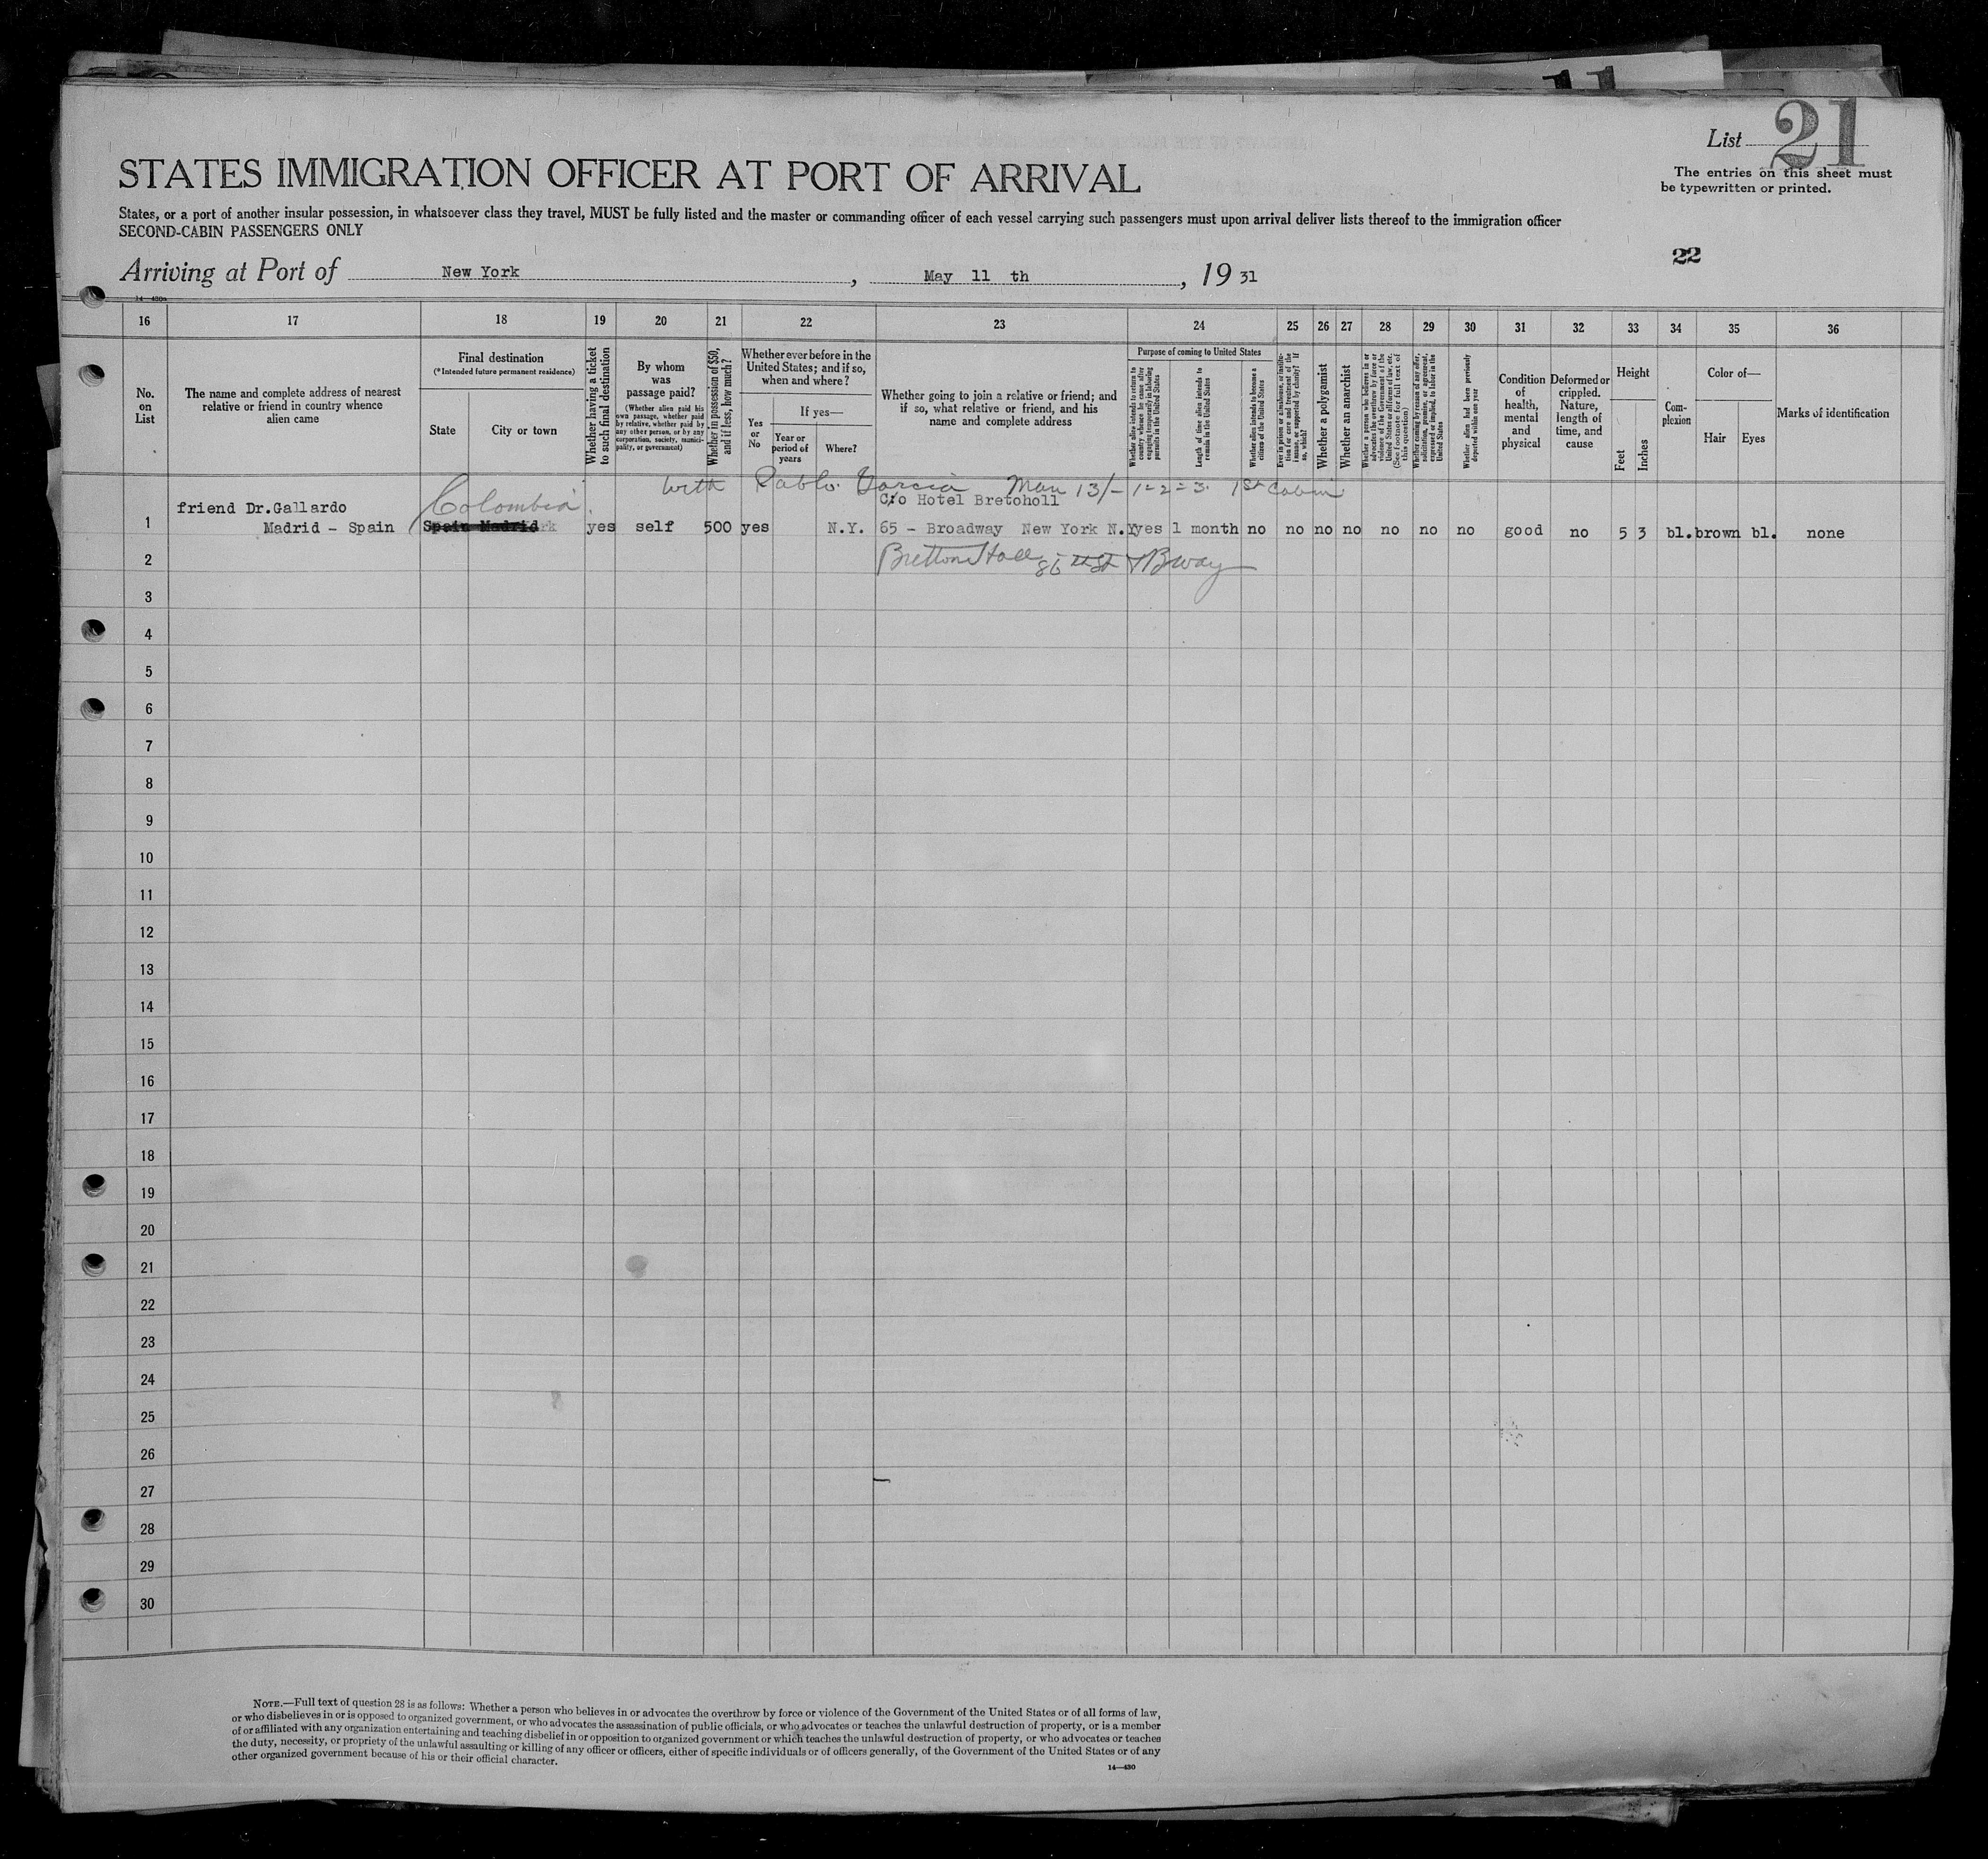 11
List 21
The entries on this sheet must
be typewritten or printed.
STATES IMMIGRATION OFFICER AT PORT OF ARRIVAL
States, or a port of another insular possession, in whatsoever class they travel, MUST be fully listed and the master or commanding officer of each vessel carrying such passengers must upon arrival deliver lists thereof to the immigration officer
SECOND-CABIN PASSENGERS ONLY
22
Arriving at Port of New York, May 11 th, 19 31
14—430a
16 17 18 19 20 21 22 23 24 25 26 27 28 29 30 31 32 33 34 35 36
No. on List
The name and complete address of nearest relative or friend in country whence alien came
Final destination
(*Intended future permanent residence)
State
City or town
Whether having a ticket to such final destination
By whom was passage paid?
(Whether alien paid his own passage, whether paid by relative, whether paid by any other person, or by any corporation, society, municipality, or government)
Whether in possession of $50, and if less, how much?
Whether ever before in the United States; and if so, when and where?
Yes or No
If yes—
Year or period of years
Where?
Whether going to join a relative or friend; and if so, what relative or friend, and his name and complete address
Purpose of coming to United States
Whether alien intends to return to country whence he came after engaging temporarily in laboring pursuits in the United States
Length of time alien intends to remain in the United States
Whether alien intends to become a citizen of the United States
Ever in prison or almshouse, or institution for care and treatment of the insane, or supported by charity? If so, which?
Whether a polygamist
Whether an anarchist
Whether a person who believes in or advocates the overthrow by force or violence of the Government of the United States or all forms of law, etc. (See footnote for full text of this question)
Whether coming by reason of any offer, solicitation, promise, or agreement, expressed or implied, to labor in the United States
Whether alien had been previously deported within one year
Condition of health, mental and physical
Deformed or crippled. Nature, length of time, and cause
Height
Feet
Inches
Complexion
Color of—
Hair
Eyes
Marks of identification
with Pablo Garcia Man 13/- 1-2-3. 1st Cabin
friend Dr.Gallardo Colombia C/o Hotel Bretoholl
1 Madrid - Spain Spain Madrid yes self 500 yes N.Y. 65 - Broadway New York N.Y yes 1 month no no no no no no no good no 5 3 bl. brown bl. none
2 Bretton Hall 86th St & Bway
3
4
5
6
7
8
9
10
11
12
13
14
15
16
17
18
19
20
21
22
23
24
25
26
27
28
29
30
NOTE.—Full text of question 28 is as follows: Whether a person who believes in or advocates the overthrow by force or violence of the Government of the United States or of all forms of law,
or who disbelieves in or is opposed to organized government, or who advocates the assassination of public officials, or who advocates or teaches the unlawful destruction of property, or is a member
of or affiliated with any organization entertaining and teaching disbelief in or opposition to organized government or which teaches the unlawful destruction of property, or who advocates or teaches
the duty, necessity, or propriety of the unlawful assaulting or killing of any officer or officers, either of specific individuals or of officers generally, of the Government of the United States or of any
other organized government because of his or their official character.
14—430